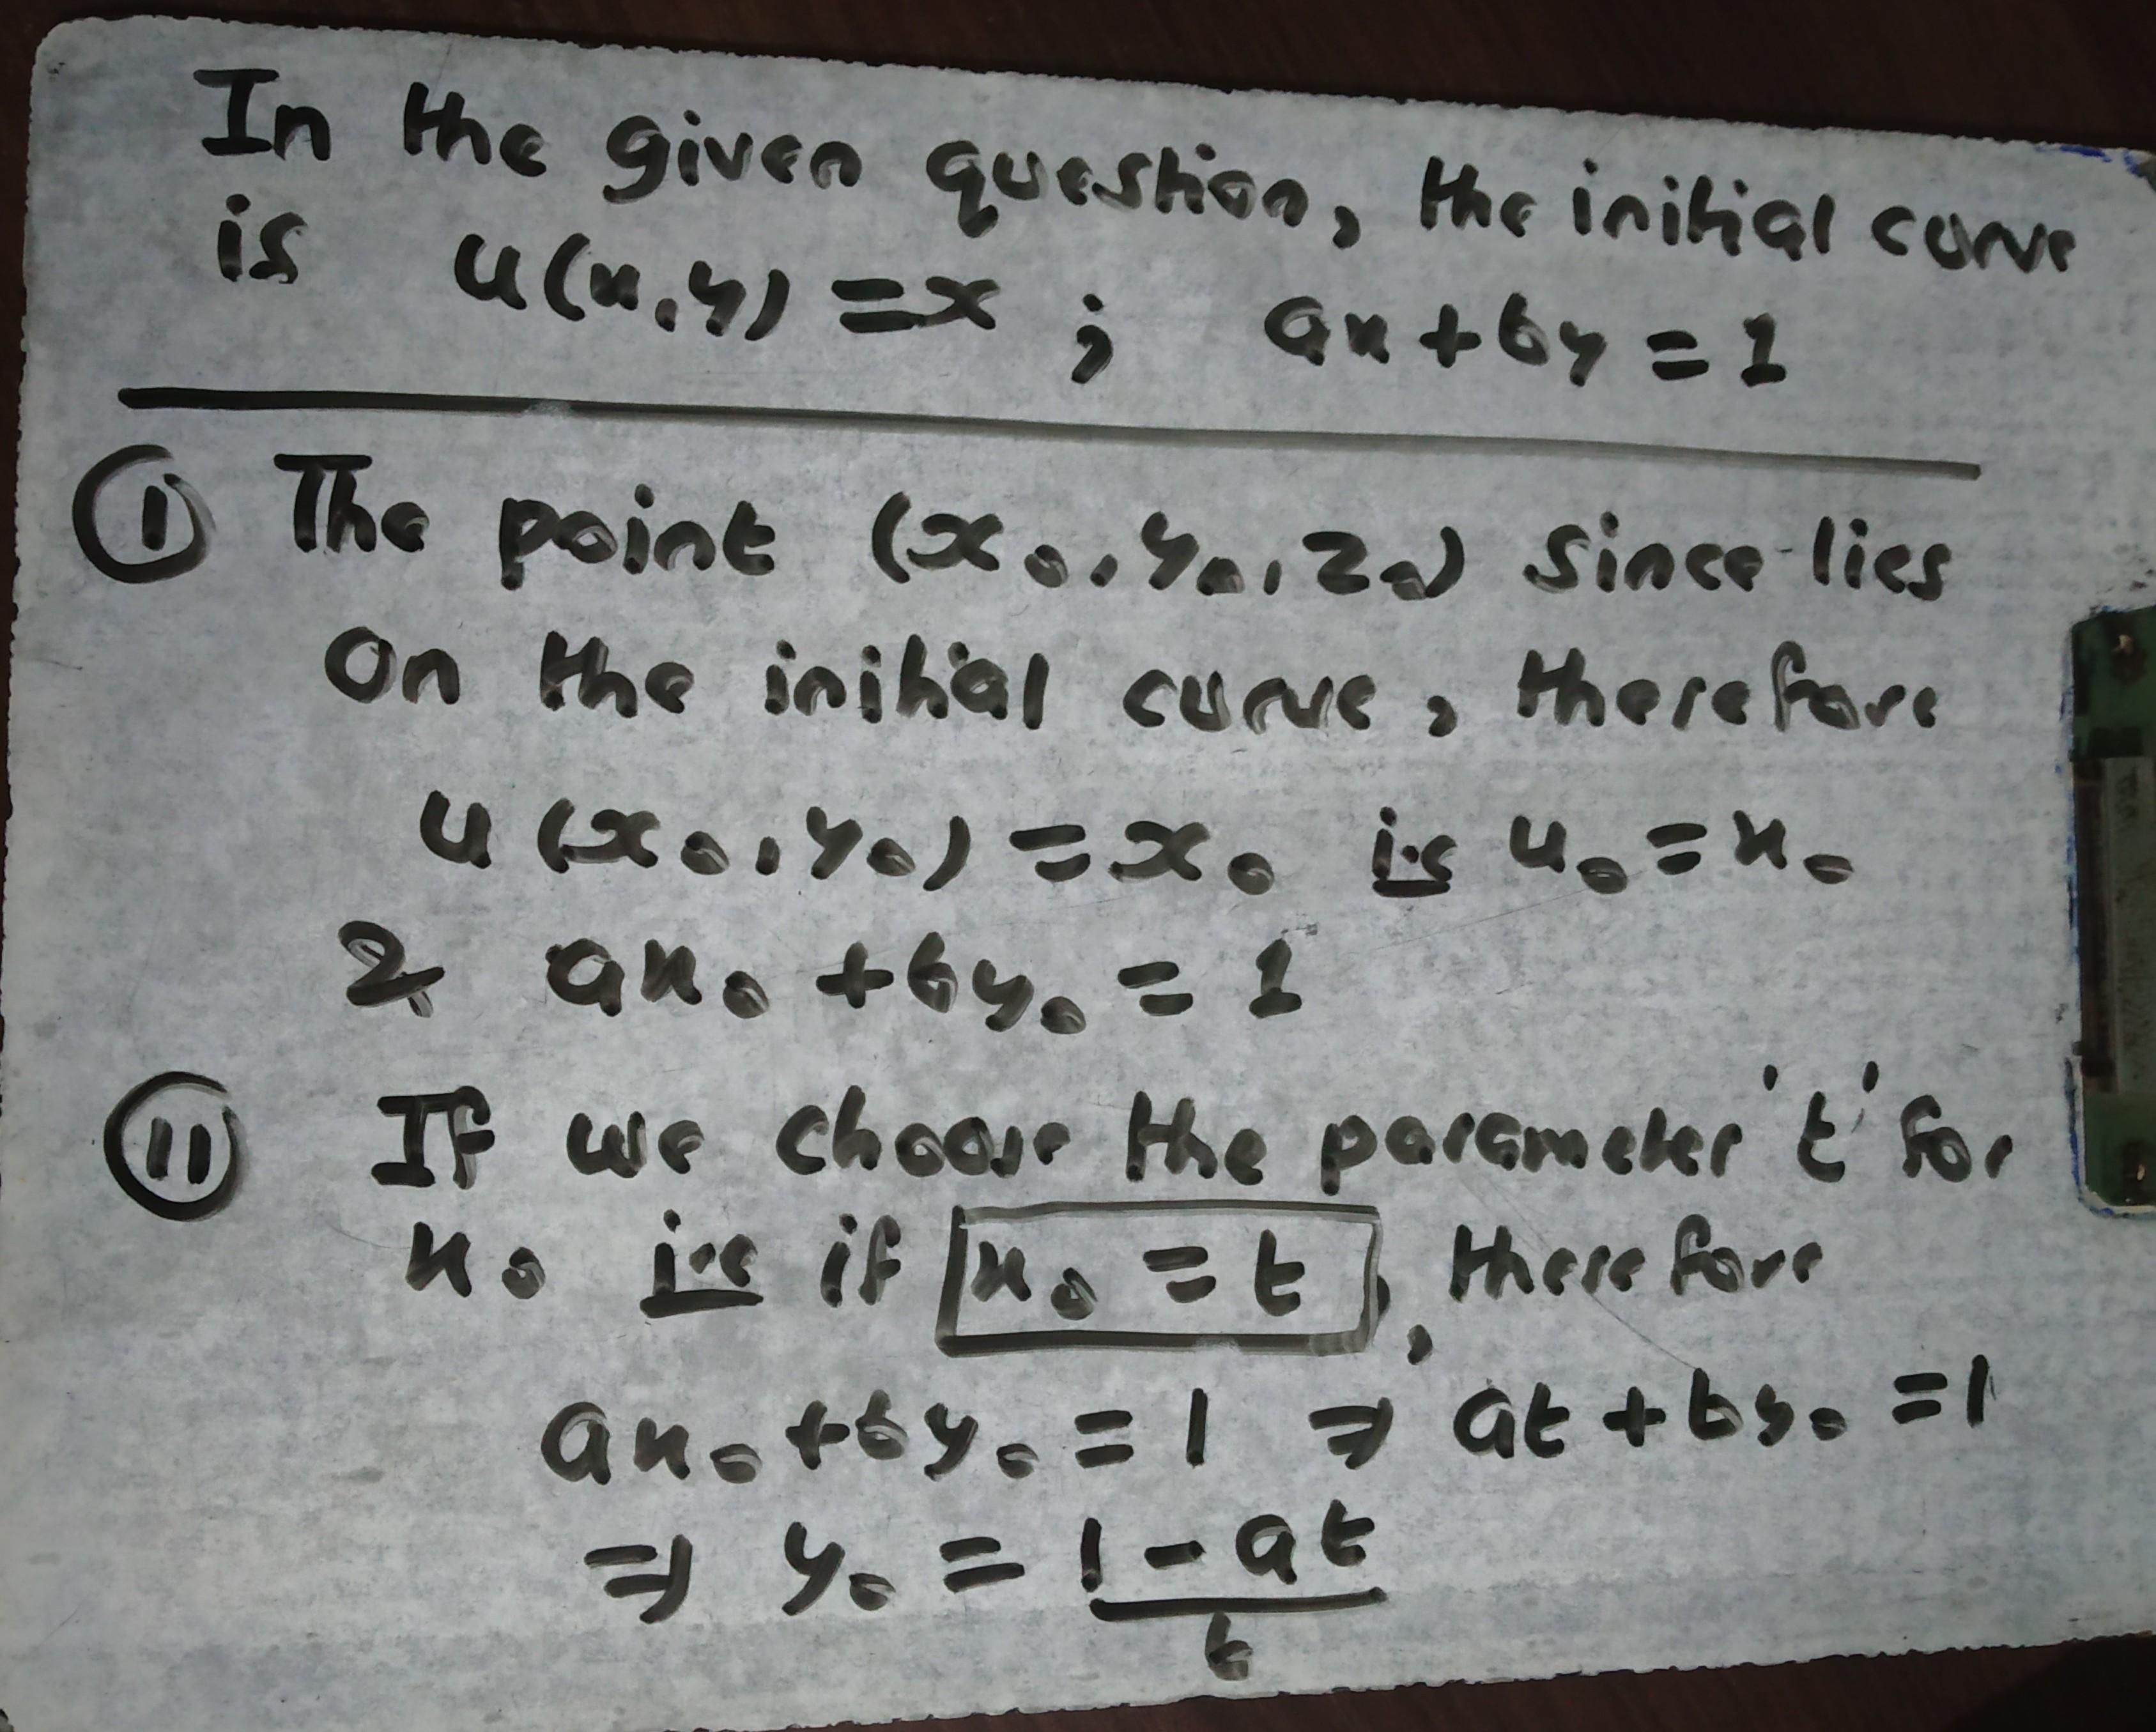 In the given question, the initial curve
is u(x,y) = x ; ax + by = 1
① The point (x₀, y₀, z₀) since lies
on the initial curve, therefore
u (x₀, y₀) = x₀ i.e u₀ = x₀
& ax₀ + by₀ = 1
⑪ If we choose the parameter 't' for
x₀ i.e if x₀ = t, therefore
ax₀ + by₀ = 1 ⇒ at + by₀ = 1
⇒ y₀ = (1 - at)/b